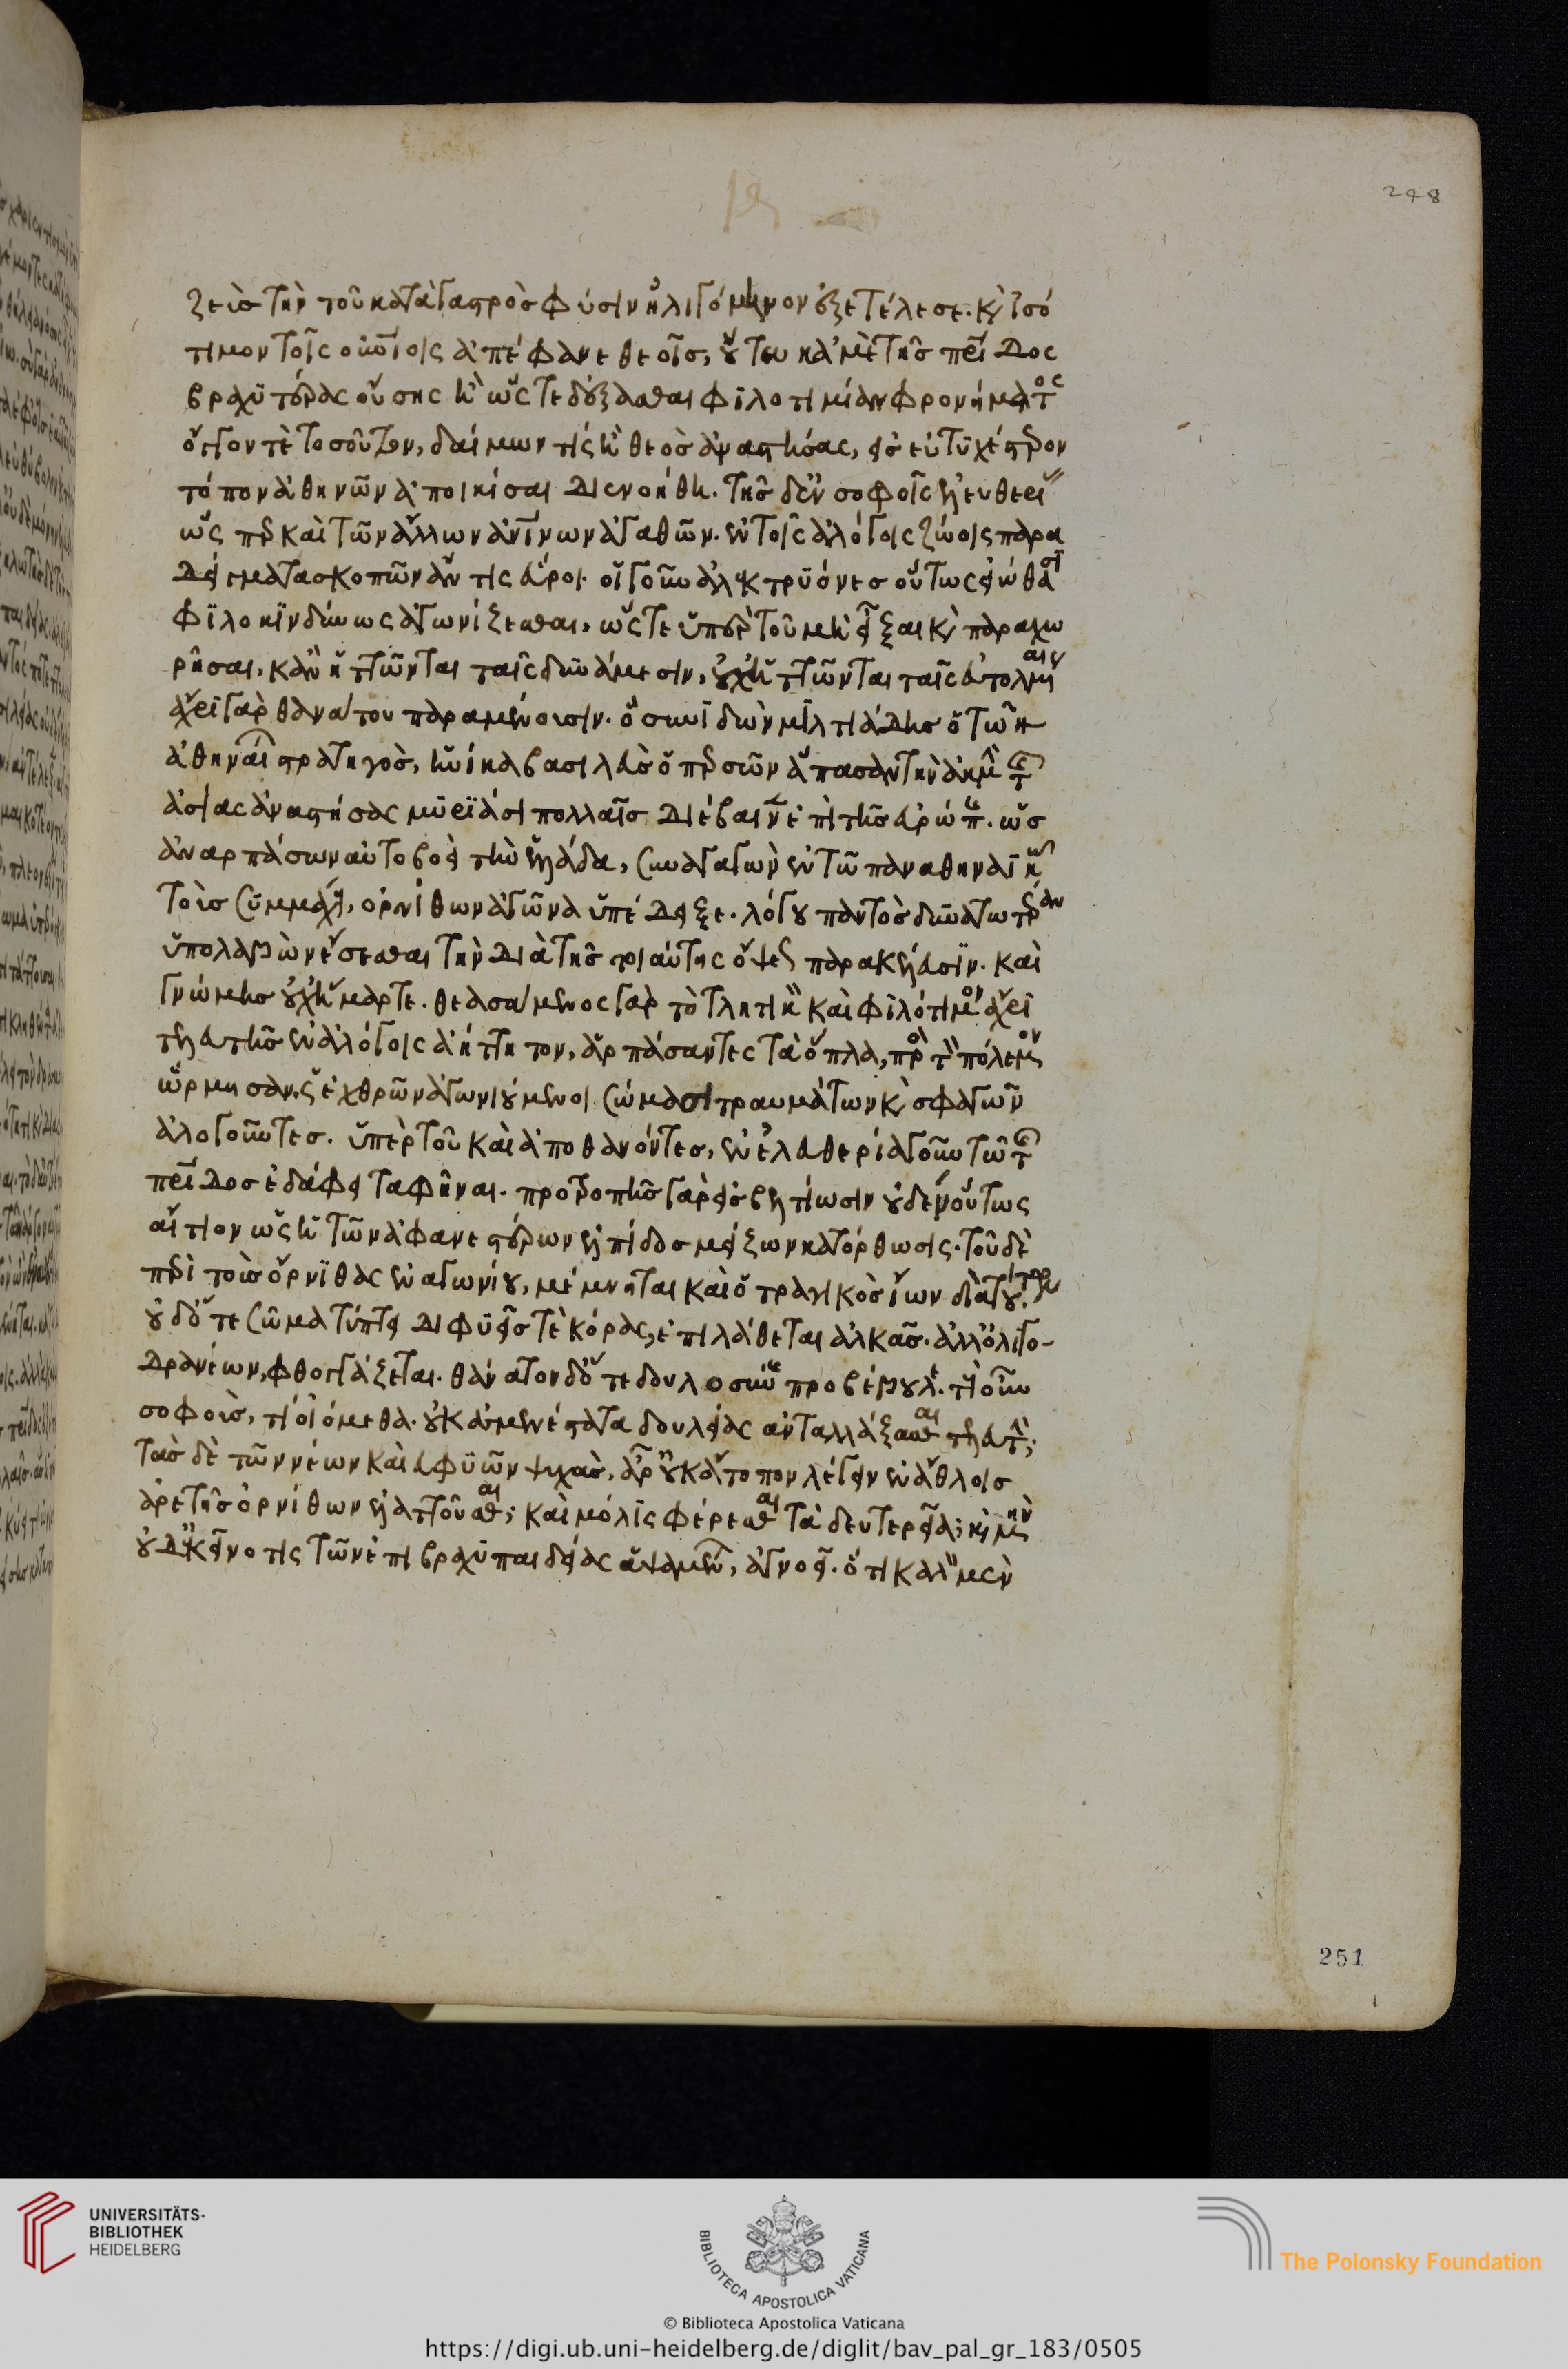 ζεὺς τὴν τοῦ κατὰ γαστρὸς φύσιν ἠλιτόμηνον ἐξετέλεσε. κ(αὶ) ἰσό
τιμον τοῖς οὐ(ρα)νίοις ἀπέφανε θεοῖς, οὕτω κἀμὲ τῆς π(ατ)ρίδος
βραχυτέρας οὔσης ἢ ὥστε δέξασθαι φιλοτιμίαν φρονήματος
ὄγκον τὲ τοσοῦτον, δαίμων τίς ἢ θεὸς ἀναστήσας, εἰς εὐτυχέστερον
τόπον ἀθηνῶν ἀποικίσαι διενοήθη. τῆς δ' ἐν σοφοῖς ἐλευθερίας
ὥσπερ καὶ τῶν ἄλλων ἀν(θρωπ)ίνων ἀγαθῶν. ἐν τοῖς ἀλόγοις ζώοις παρα
δείγματα σκοπῶν ἄν τις εὕροι. οἱ γοῦν ἀλεκτρυόνες οὕτως εἰώθασι
φιλοκινδύνως ἀγωνίζεσθαι, ὥστε ὑπὲρ τοῦ μὴ εἶξαι κ(αὶ) παραχω
ρῆσαι, κἂν ἡττῶνται ταῖς δυνάμεσιν, οὐχ ἡττῶνται ταῖς εὐτολμίαις
ἄχρι γὰρ θανάτου παραμένουσιν. ὃ συνιδὼν μιλτιάδης ὁ τῶν
ἀθηναί(ων) στρατηγὸς, ἡνίκα βασιλεὺς ὁ περσῶν ἅπασαν τὴν ἀκμὴν τῆς
ἀσίας ἀναστήσας μυριάσι πολλαῖς διέβαινεν ἐπὶ τὴν εὐρώπην. ὡς
ἀναρπάσων αὐτοβοεὶ τὴν ἑλλάδα, συναγαγὼν ἐν τῶ παναθηναϊκῶ
τοὺς συμμάχους, ὀρνίθων ἀγῶνα ὑπέδειξε. λόγου παντὸς δυνατωτέραν
ὑπολαβὼν ἔσεσθαι τὴν διὰ τῆς τοιαύτης ὄψεως παρακέλευσιν. καὶ
γνώμης οὐχ ἥμαρτε. θεασάμενος γὰρ τὸ τλητικὸν καὶ φιλότιμον ἄχρι
τελευτῆς ἐν ἀλόγοις ἀήττητον, ἁρπάσαντες τὰ ὅπλα, πρὸς τὸν πόλεμον
ὥρμησαν, ὡς ἐχθρῶν ἀγωνιούμενοι σώμασι τραυμάτων κ(αὶ) σφαγῶν
ἀλογοῦντες. ὑπὲρ τοῦ καὶ ἀποθανόντες, ἐν ἐλευθερία γοῦν τῶ τῆς
π(ατ)ρίδος ἐδάφει ταφῆναι. προτροπῆς γὰρ εἰς βελτίωσιν οὐδὲν οὕτως
αἴτιον ὡς ἡ τῶν ἀφανεστέρων ἐλπίδος μείζων κατόρθωσις. τοῦ δὲ
περὶ τοὺς ὄρνιθας ἐναγωνίου, μέμνηται καὶ ὁ τραγικὸς ἴων διὰ τούτων.
οὐδ' ὅ γε σῶμα τύπτει διφυεῖς τὲ κόρας, ἐπιλάθεται ἀλκᾶς. ἀλλ' ὀλιγο-
δρανέων, φθογγάζεται. θάνατον δ' ὅ γε δουλοσύν(ας) προβέβουλε. τ(οὺς) οὖν
σοφοὺς, τί οἰόμεθα. οὐκ ἀσμενέστατα δουλείας ἀνταλλάξασθαι τελευτήν;
τὰς δὲ τῶν νέων καὶ εὐφυῶν ψυχὰς, ἆρ' οὐκ ἄτοπον λέγειν ἐν ἄθλοις
ἀρετῆς ὀρνίθων ἐλαττοῦσθαι; καὶ μόλις φέρεσθαι τὰ δευτερεῖα; κ(αὶ) μὴν
οὐδ' ἐκεῖνο τις τῶν ἐπὶ βραχὺ παιδείας ἁψαμέν(ων), ἀγνοεῖ. ὅτι καλὸν μὲν
248
251
UNIVERSITÄTS-
BIBLIOTHEK
HEIDELBERG
BIBLIOTECA APOSTOLICA VATICANA
The Polonsky Foundation
© Biblioteca Apostolica Vaticana
https://digi.ub.uni-heidelberg.de/diglit/bav_pal_gr_183/0505